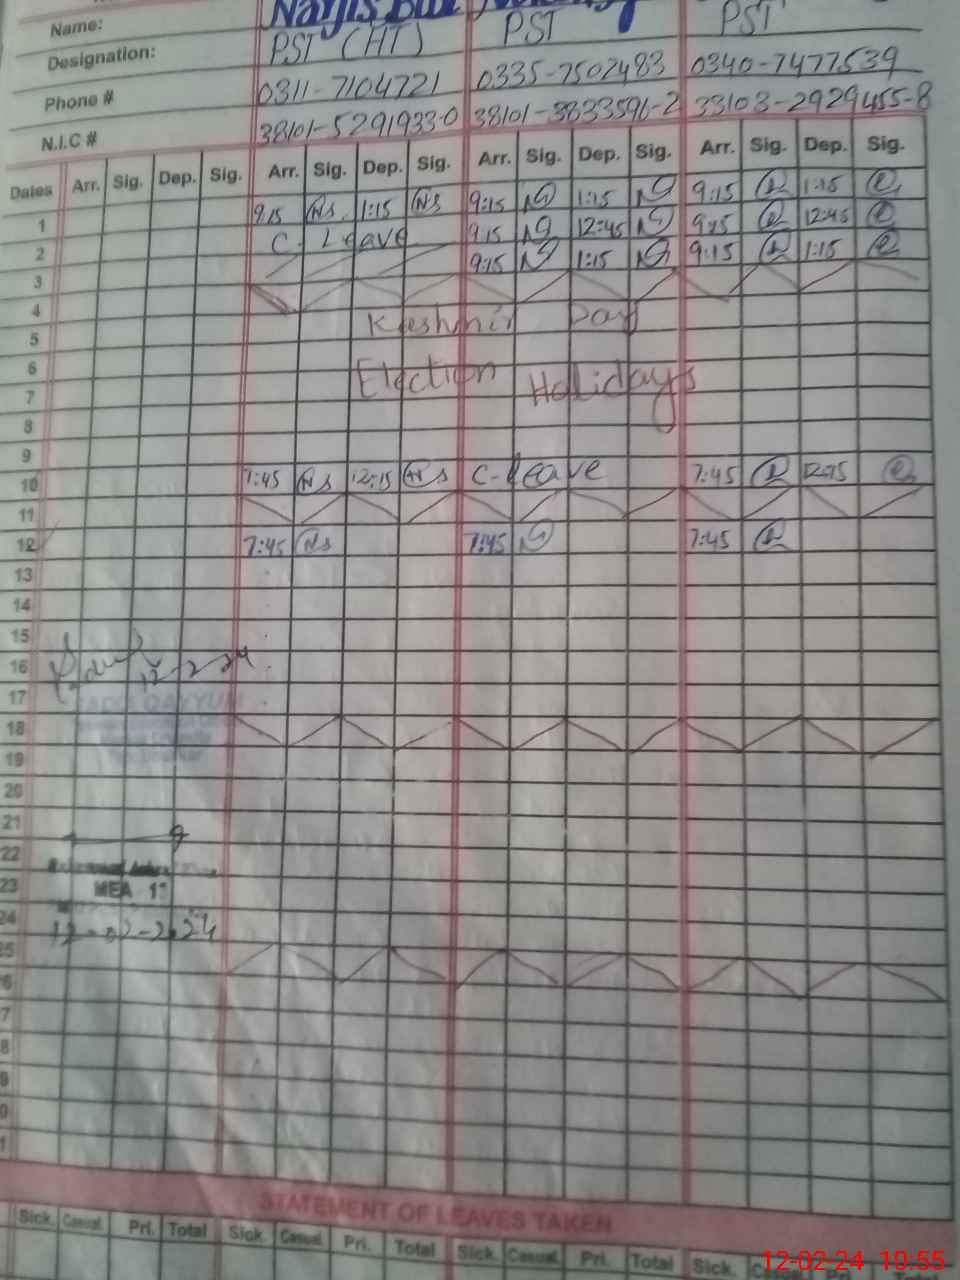 Name:
Designation: PST (HT) PST PST
Phone # 0311-7104721 0335-7507483 0340-7477539
N.I.C # 38101-5291933-0 38101-3833596-2 33103-2929455-8
Dates Arr. Sig. Dep. Sig. Arr. Sig. Dep. Sig. Arr. Sig. Dep. Sig. Arr. Sig. Dep. Sig.
1 9:15 Ns 1:15 Ns 9:15 1:15 9:15 1:15
2 C. Leave 9:15 12:45 9:15 12:45
3 9:15 1:15 9:15 1:15
4
5 Kashmir Day
6
7 Election Holidays
8
9
10 7:45 Ns 12:15 Ns C-Leave 7:45 12:15
11
12 7:45 Ns 7:45 7:45
13
14
15
16 12-2-24
17
QAYYUM
18
19
20
21
22
23 MEA
24 12-02-2024
25
26
7
8
9
0
1
STATEMENT OF LEAVES TAKEN
Sick. Casual. Pri. Total Sick. Casual. Pri. Total Sick. Casual. Pri. Total Sick.
12-02-24 10:55